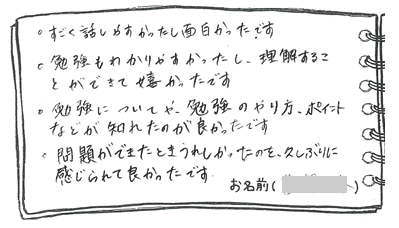 。すごく話しやすかったし面白かったです
。勉強もわかりやすかったし、理解するこ
とができて嬉かったです
。勉強についてや、勉強のやり方、ポイント
などが知れたのが良かったです
。問題ができたときうれしかったのを、久しぶりに
感じられて良かったです
お名前( )